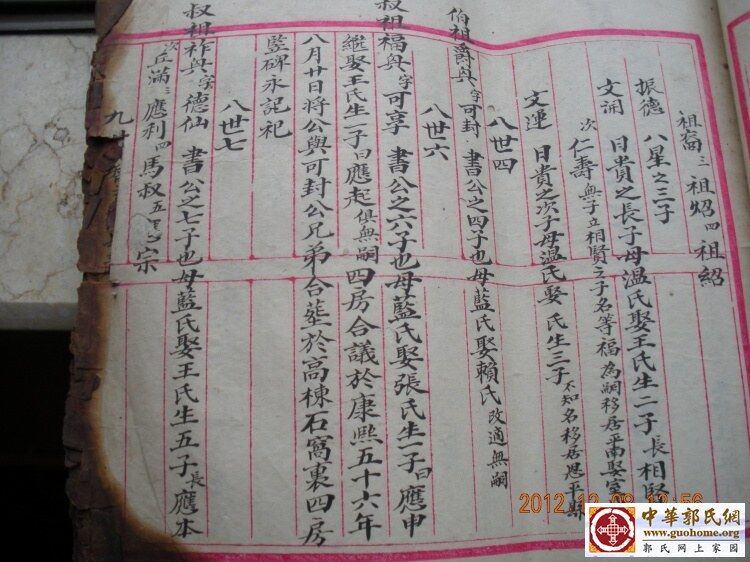 祖裔三祖炤四祖紹
振德 八星之三子
文開 日貴之長子母溫氏娶王氏生二子長相賢
次仁壽無子立相賢之子名等福為嗣移居平南娶室
文運 日貴之次子母溫氏娶 氏生三子不知名移居恩平縣
八世四
伯祖爵與字可封 書公之四子也母藍氏娶賴氏改適無嗣
八世六
叔祖福與字可享 書公之六子也母藍氏娶張氏生一子曰應申
繼娶王氏生一子曰應起俱無嗣四房合議於康熙五十六年
八月廿日將公與可封公兄弟合塟於高棟石窩裏四房
監碑永記祀
八世七
叔祖祚與字德仙 書公之七子也母藍氏娶王氏生五子長應本
次 滿三應利四馬叔五 宗
九
2012 12 08 12:56
中華郭氏網
www.guohome.org
郭氏网上家园